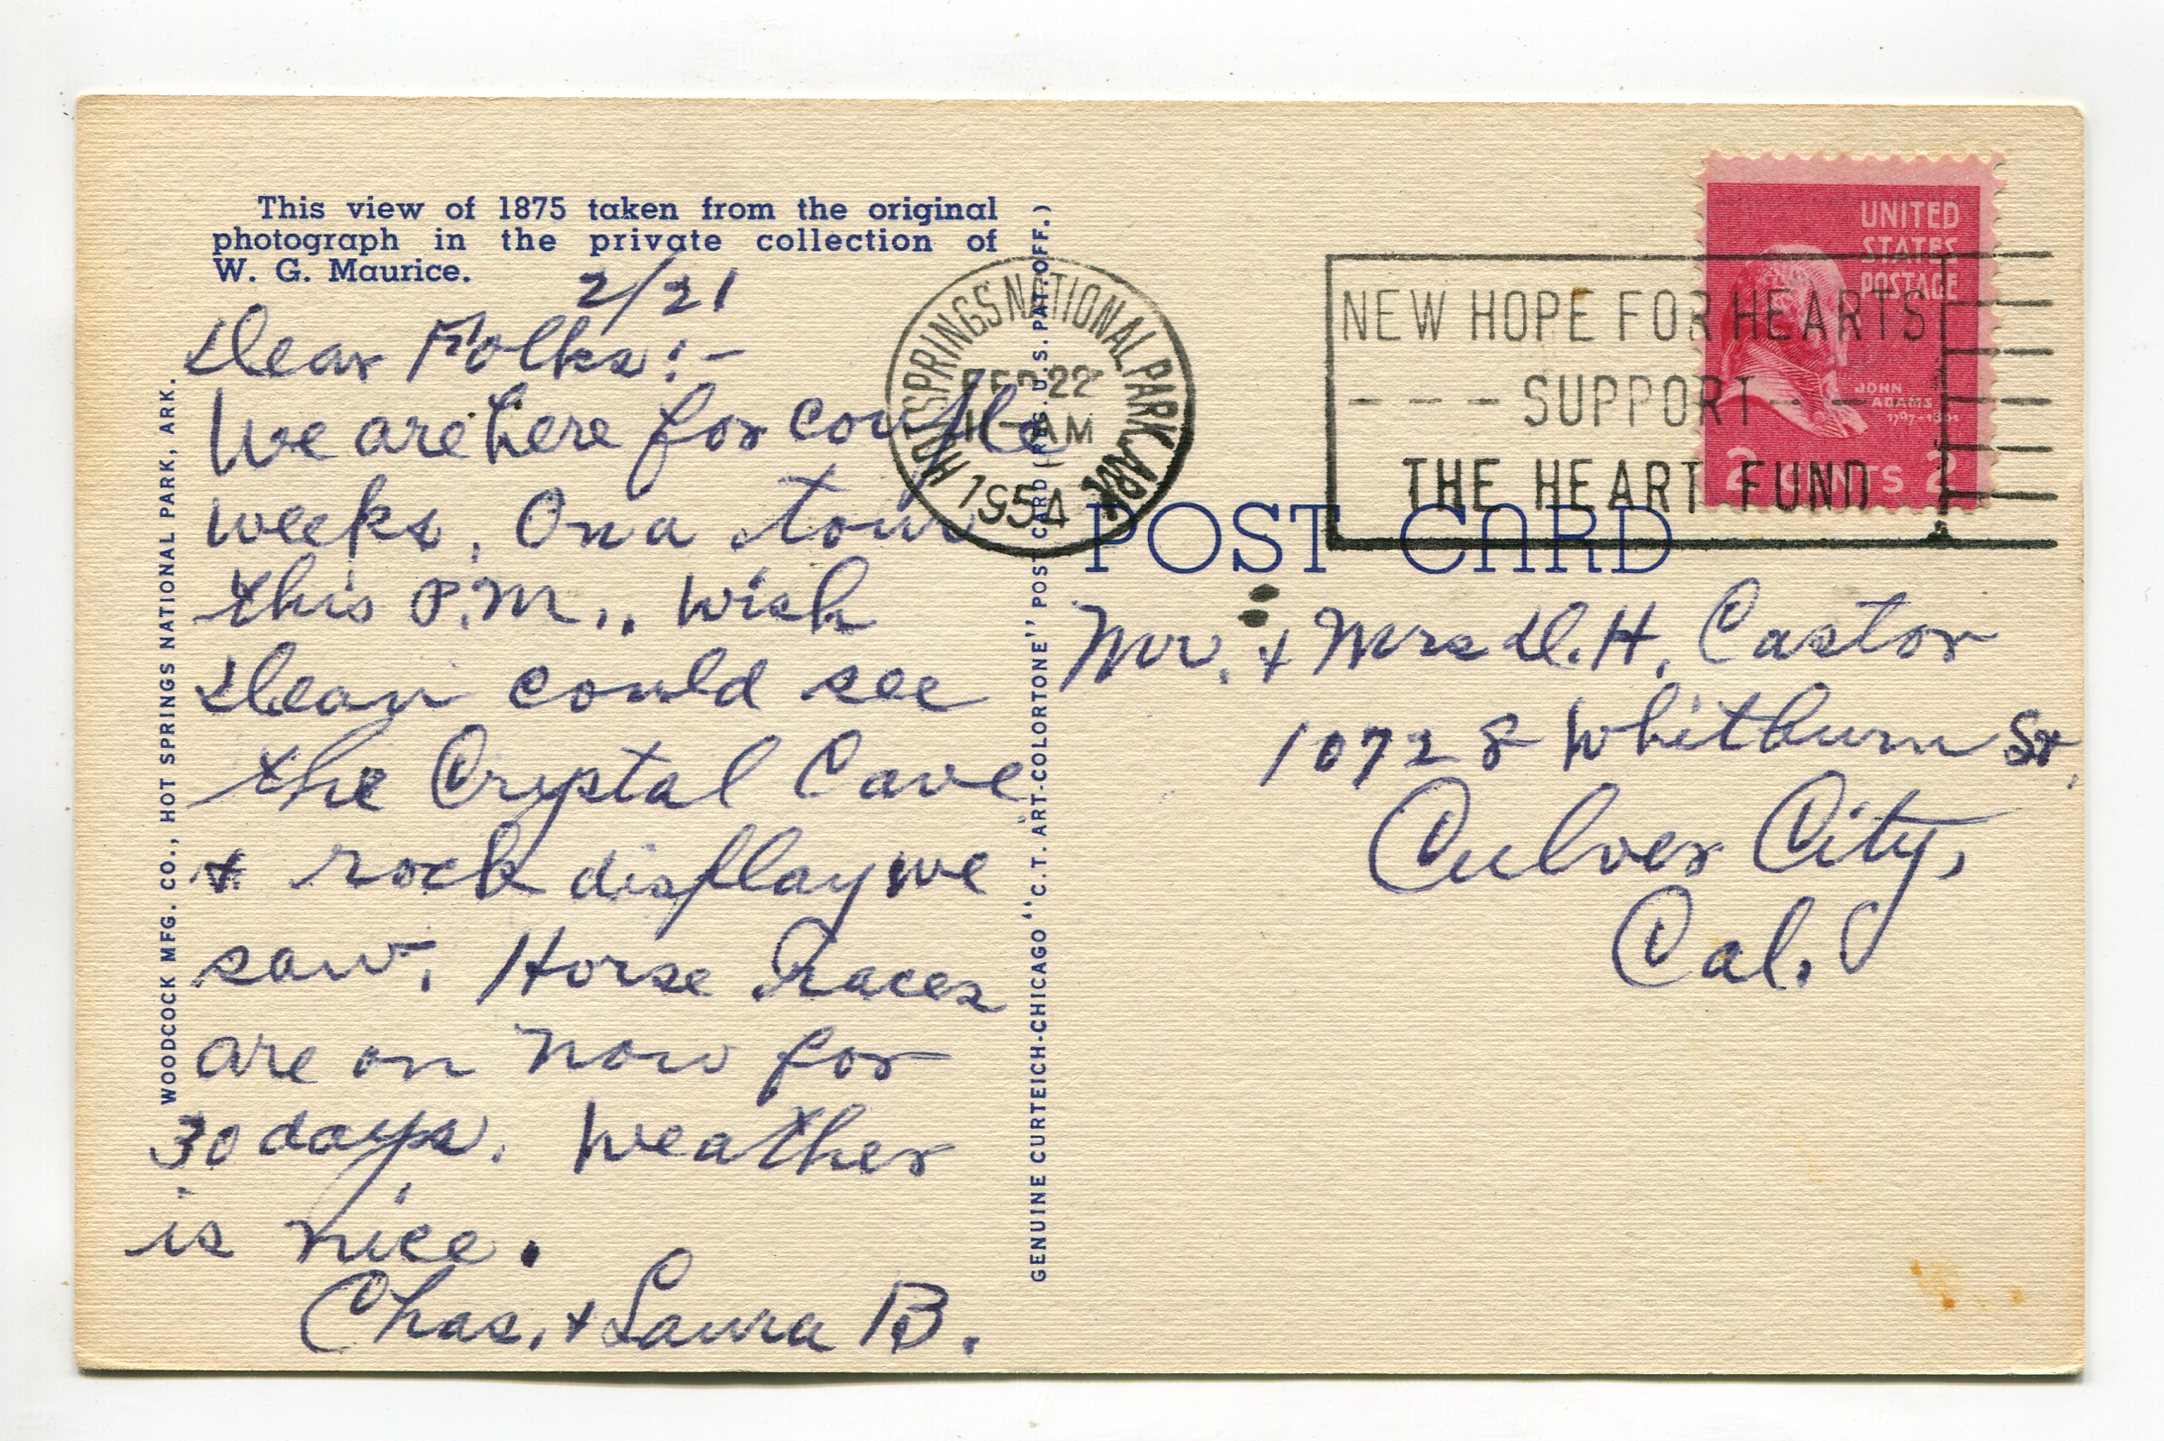 This view of 1875 taken from the original
photograph in the private collection of
W. G. Maurice.
2/21
Dear Folks:-
We are here for couple
weeks. On a tour
this P.M.. Wish
Dean could see
the Crystal Cave
& rock display we
saw. Horse Races
are on now for
30 days. Weather
is nice.
Chas. & Laura B.
WOODCOCK MFG. CO., HOT SPRINGS NATIONAL PARK, ARK.
GENUINE CURTEICH-CHICAGO "C.T. ART-COLORTONE" POST CARD (REG. U.S. PAT. OFF.)
HOT SPRINGS NATIONAL PARK, ARK.
FEB 22
11-AM
1954
NEW HOPE FOR HEARTS
SUPPORT
THE HEART FUND
UNITED
STATES
POSTAGE
JOHN
ADAMS
1797-1801
2 CENTS 2
POST CARD
Mr. & Mrs D.H. Castor
10728 Whitburn St.
Culver City,
Cal.